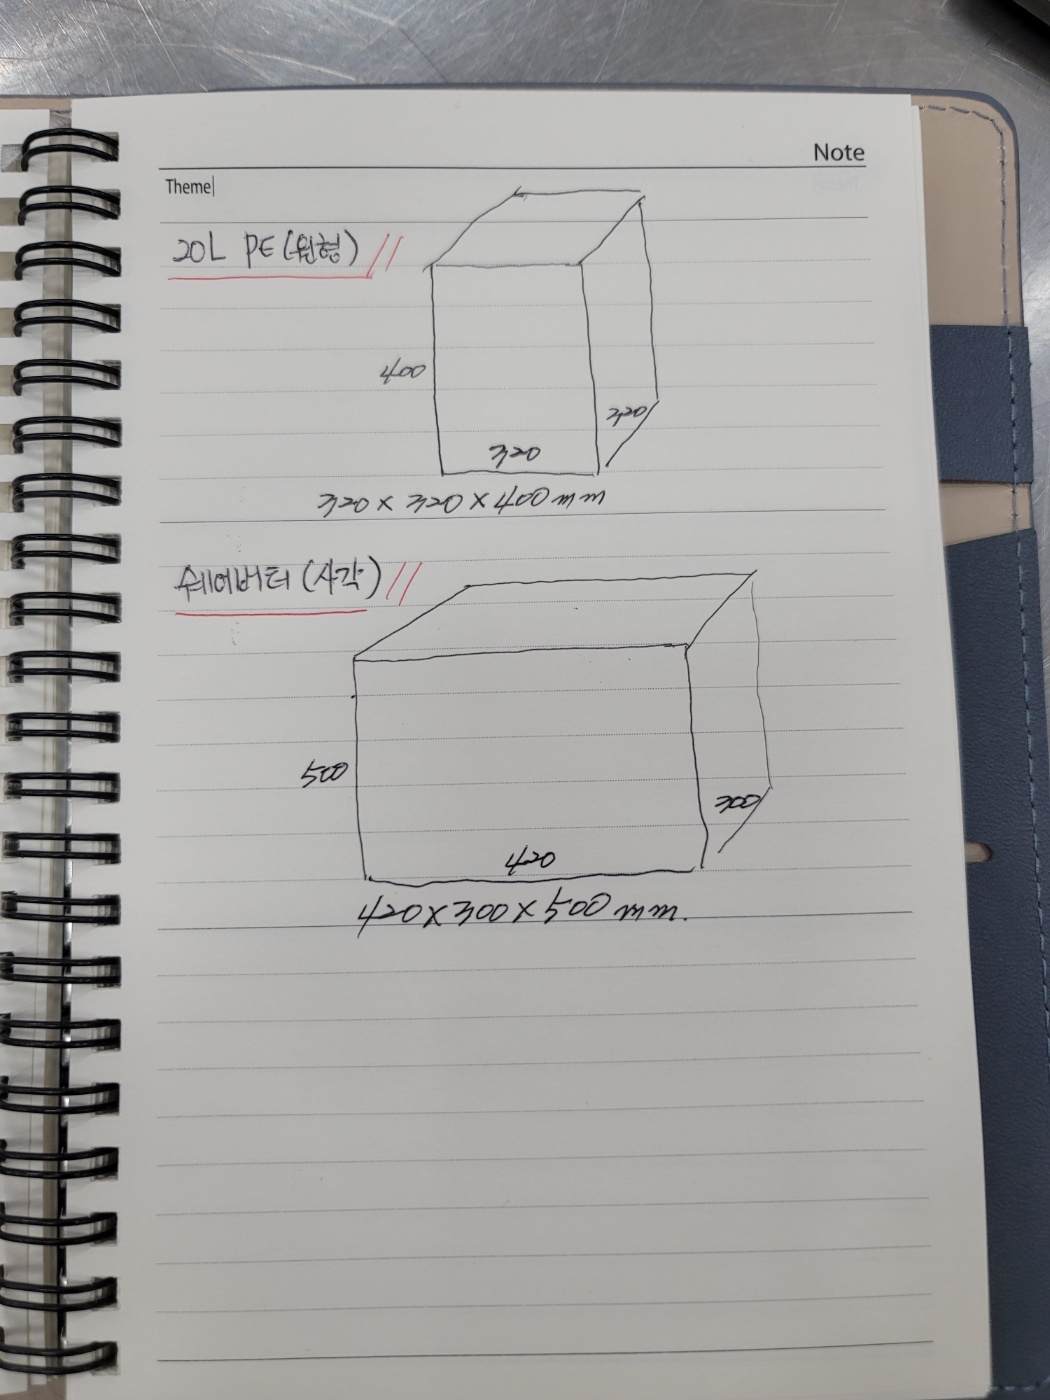 Note
Theme
20L PE (원형)
400
320
320
320 x 320 x 400 mm
쉐어버터 (사각)
500
300
420
420 x 300 x 500 mm.